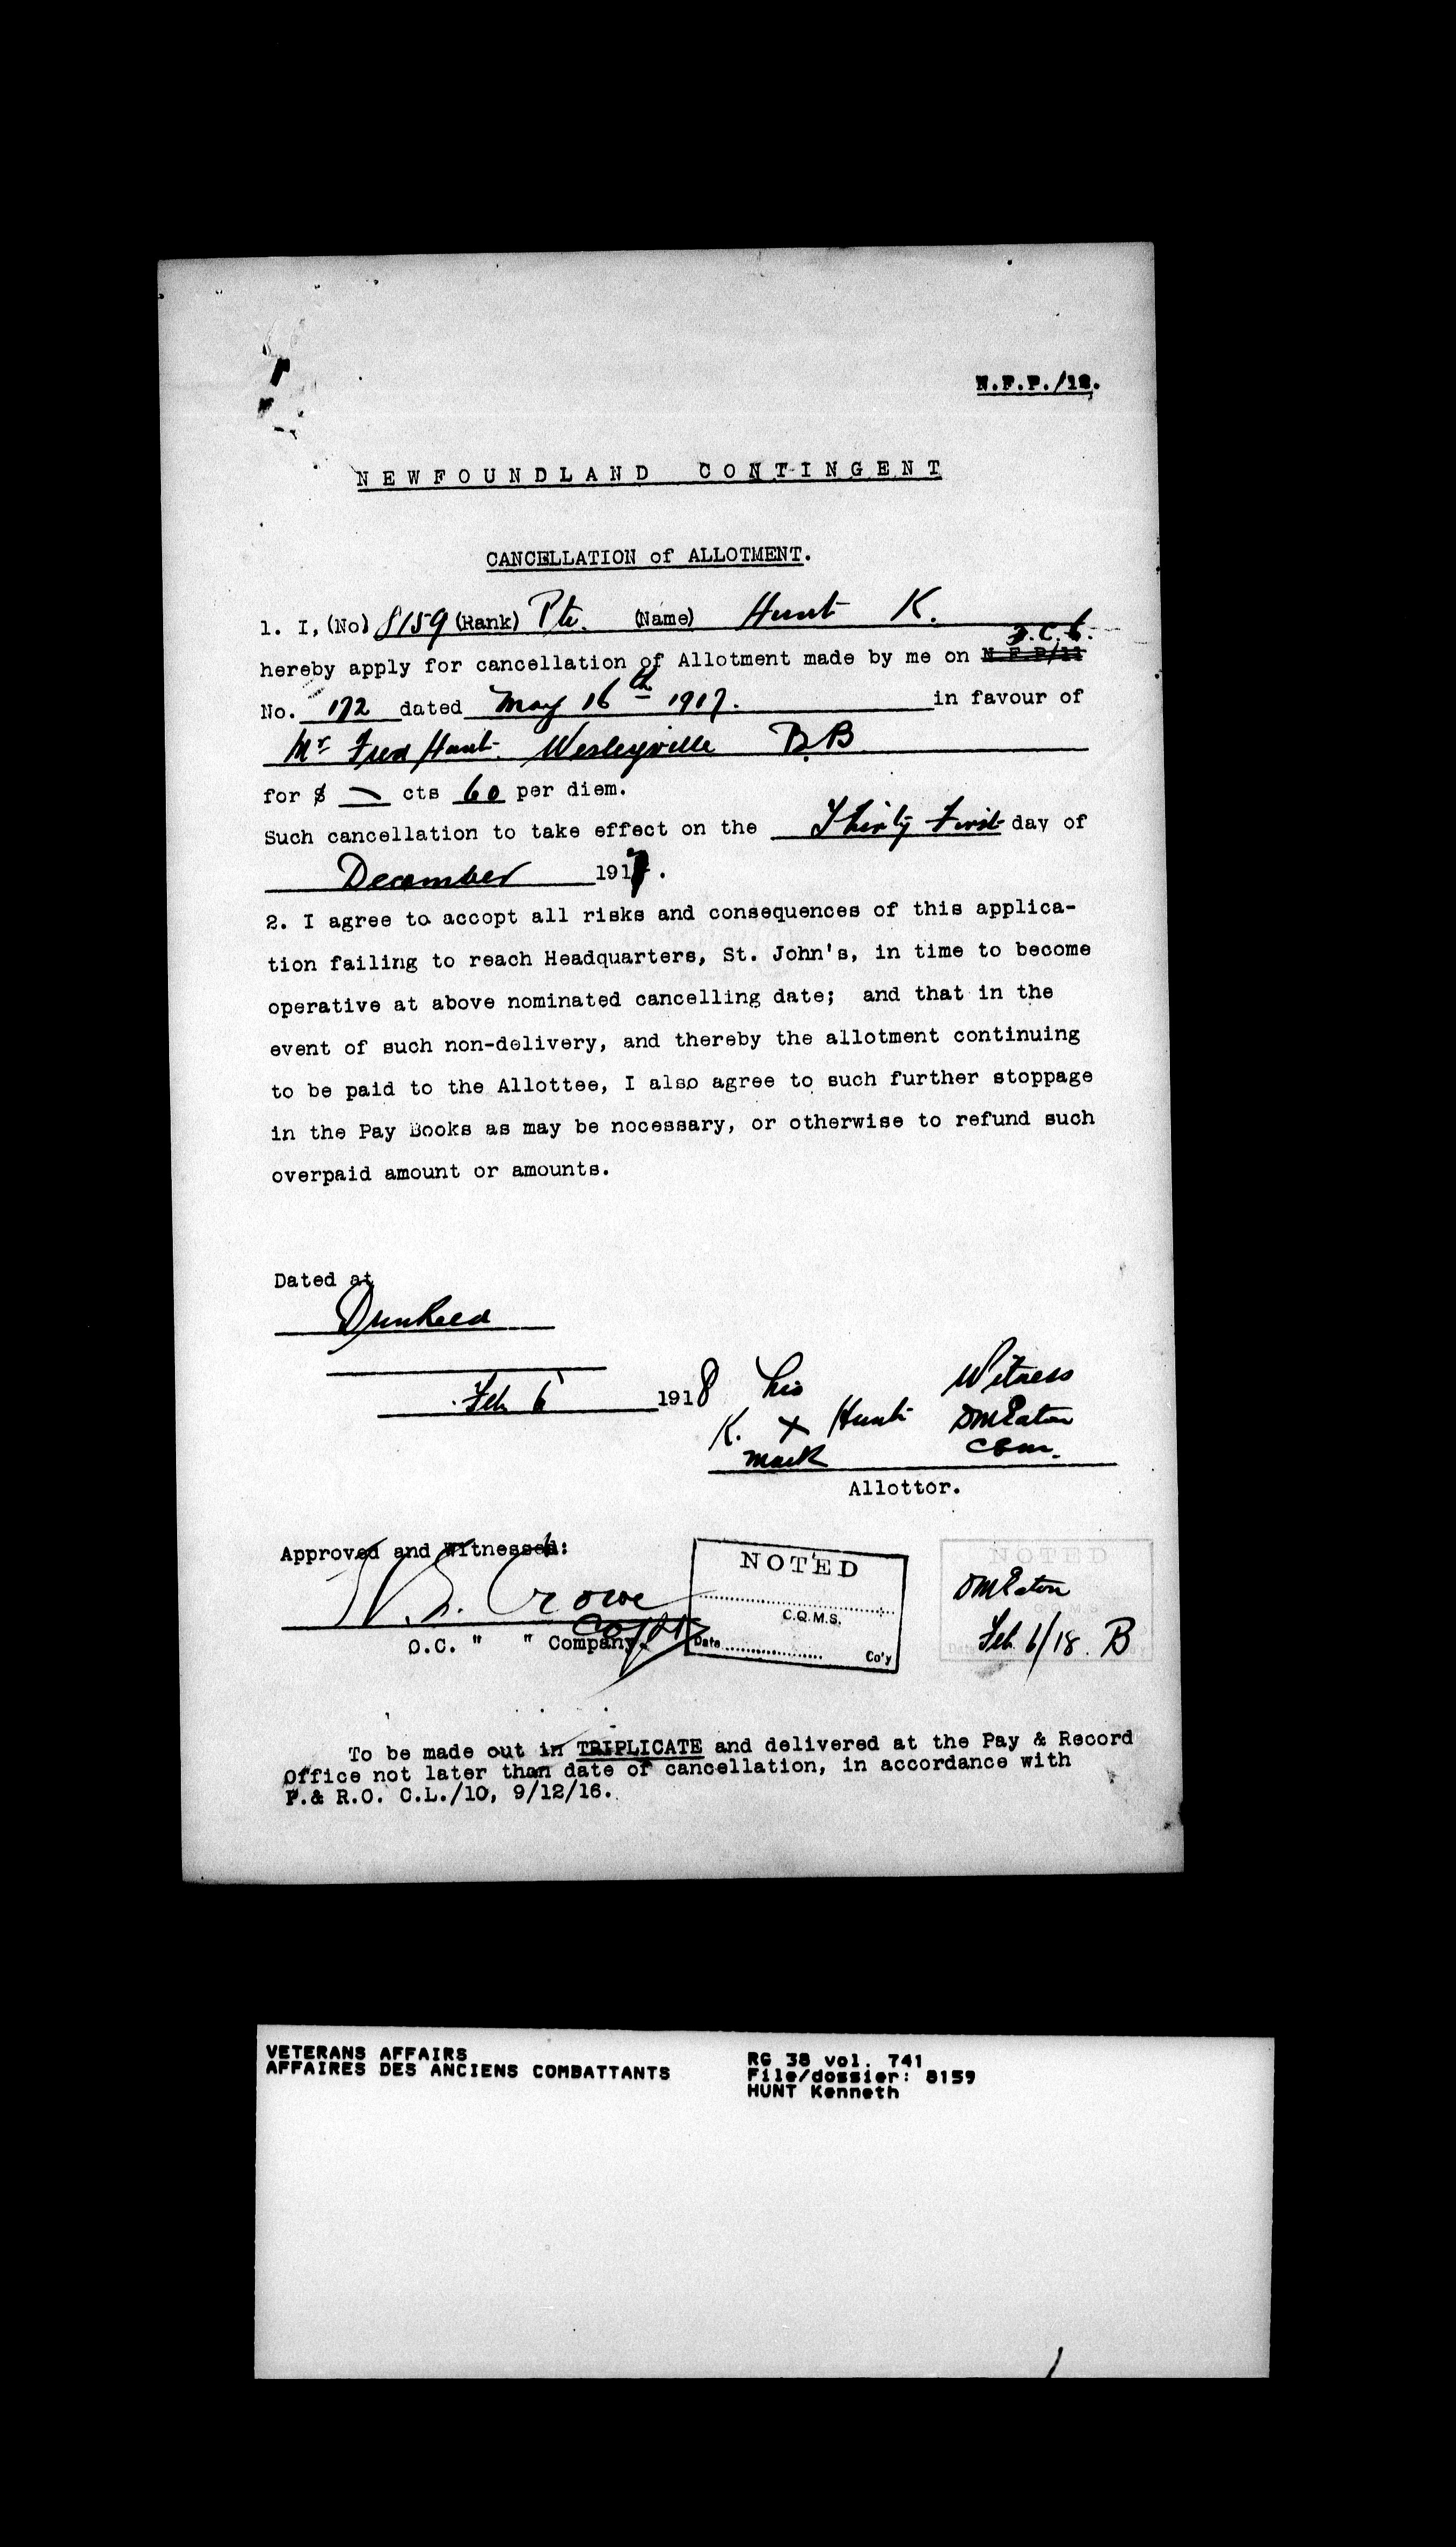 N.F.P./12.
NEWFOUNDLAND CONTINGENT
CANCELLATION of ALLOTMENT.
1. I, (No) 8159 (Rank) Pte. (Name) Hunt K.
hereby apply for cancellation of Allotment made by me on N.F.P/11
No. 172 dated May 16th 1917. in favour of
Mr Fred Hunt. Wesleyville B.B
for $ — cts 60 per diem.
Such cancellation to take effect on the Thirty First day of
December 1917.
2. I agree to accopt all risks and consequences of this applica-
tion failing to reach Headquarters, St. John's, in time to become
operative at above nominated cancelling date; and that in the
event of such non-delivery, and thereby the allotment continuing
to be paid to the Allottee, I also agree to such further stoppage
in the Pay Books as may be nocessary, or otherwise to refund such
overpaid amount or amounts.
Dated at
Feb 6 1918
his Witness
K. x Hunt DMEaton
mark
Allottor.
Approved and Witnessed:
Crowe
Capt
O.C. " " Company.
NOTED
C.Q.M.S.
Date.................... Co'y
NOTED
DMEaton
Feb. 6/18. B
To be made out in TRIPLICATE and delivered at the Pay & Record
Office not later than date of cancellation, in accordance with
P.& R.O. C.L./10, 9/12/16.
VETERANS AFFAIRS
AFFAIRES DES ANCIENS COMBATTANTS
RG 38 vol. 741
File/dossier: 8159
HUNT Kenneth